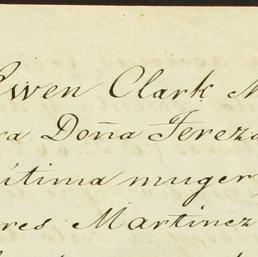 Owen Clark M
ra Doña Tereza
ítima muger
res Martinez